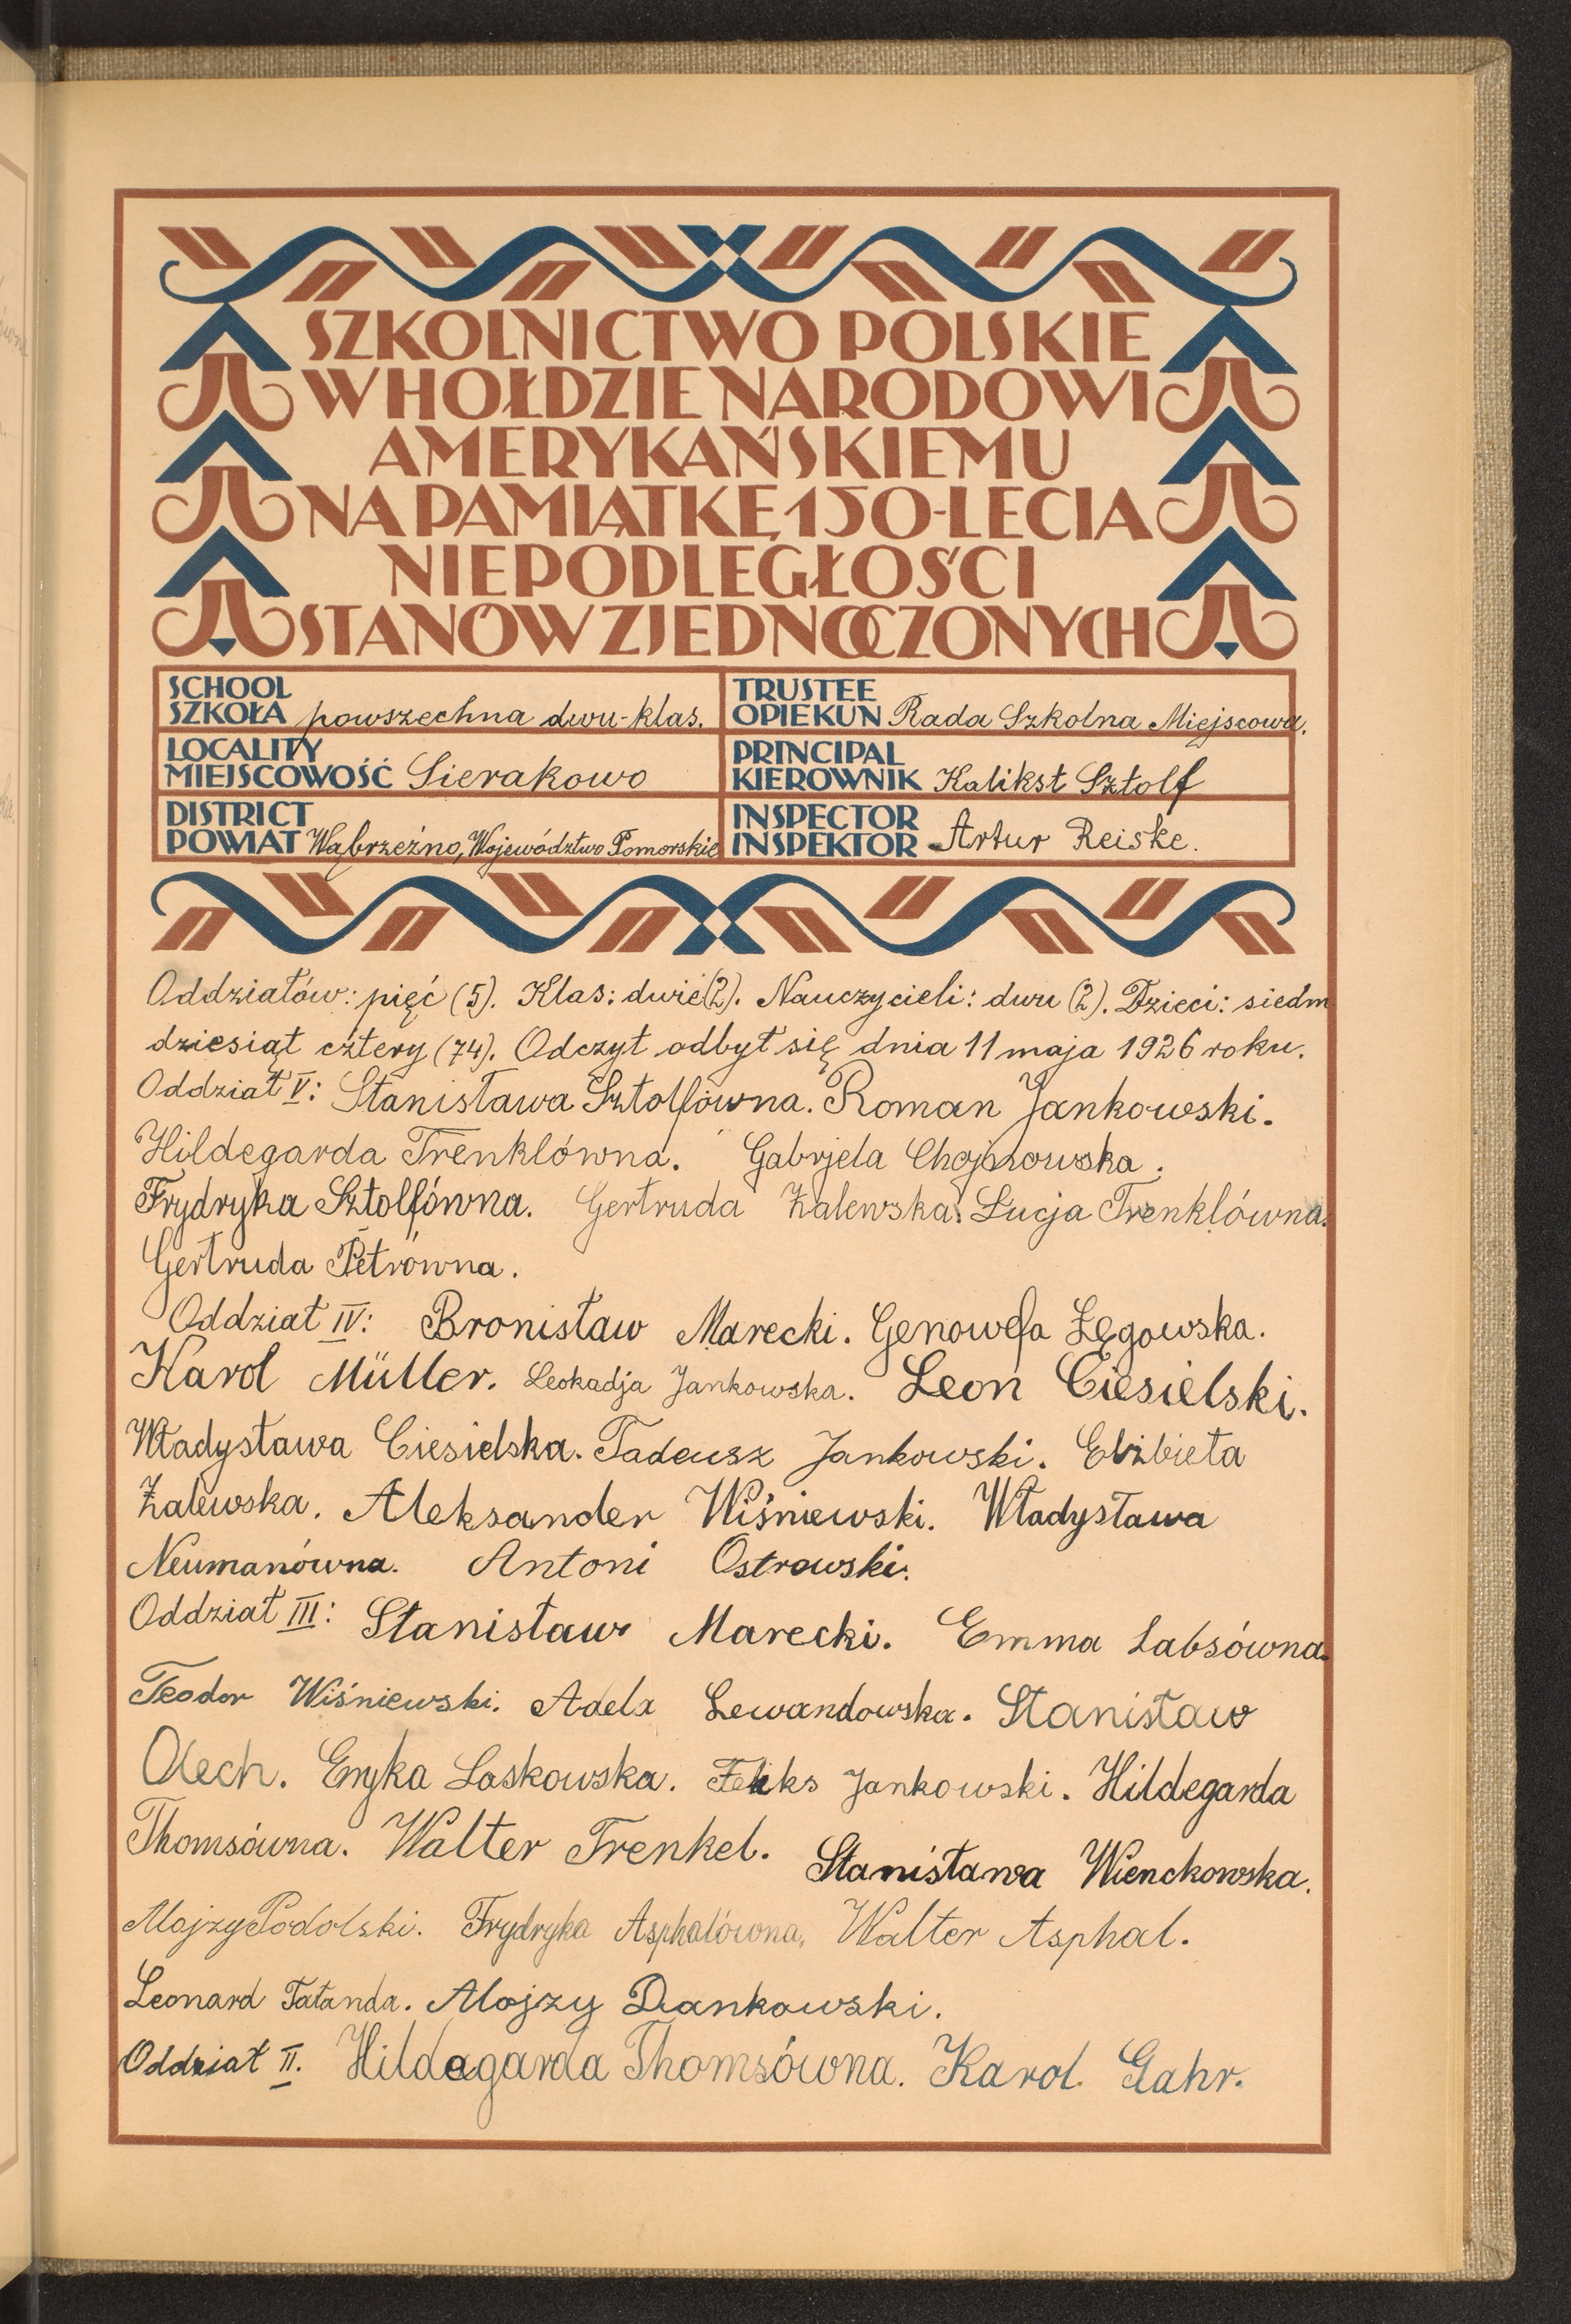 SZKOLNICTWO POLSKIE
W HOŁDZIE NARODOWI
AMERYKAŃSKIEMU
NA PAMIĄTKĘ 150-LECIA
NIEPODLEGŁOŚCI
STANÓW ZJEDNOCZONYCH
SCHOOL
SZKOŁA powszechna dwu-klas.
TRUSTEE
OPIEKUN Rada Szkolna Miejscowa.
LOCALITY
MIEJSCOWOŚĆ Sierakowo
PRINCIPAL
KIEROWNIK Kalikst Sztolf
DISTRICT
POWIAT Wąbrzeźno, Województwo Pomorskie
INSPECTOR
INSPEKTOR Artur Reiske.
Oddziałów: pięć (5). Klas: dwie (2). Nauczycieli: dwu (2). Dzieci: siedm
dziesiąt cztery (74). Odczyt odbył się dnia 11 maja 1926 roku.
Oddział V: Stanisława Sztolfówna. Roman Jankowski.
Hildegarda Trenklówna. Gabrjela Chojnowska.
Frydryka Sztolfówna. Gertruda Zalewska. Łucja Trenklówna.
Gertruda Petrówna.
Oddział IV: Bronisław Marecki. Genowefa Łęgowska.
Karol Müller. Leokadja Jankowska. Leon Ciesielski.
Władysława Ciesielska. Tadeusz Jankowski. Elżbieta
Zalewska. Aleksander Wiśniewski. Władysława
Neumanówna. Antoni Ostrowski.
Oddział III: Stanisław Marecki. Emma Labsówna.
Teodor Wiśniewski. Adela Lewandowska. Stanisław
Olech. Eryka Laskowska. Feliks Jankowski. Hildegarda
Thomsówna. Walter Trenkel. Stanisława Wienckowska.
Alojzy Podolski. Frydryka Asphalówna. Walter Asphal.
Leonard Tatanda. Alojzy Dankowski.
Oddział II. Hildegarda Thomsówna. Karol Gahr.